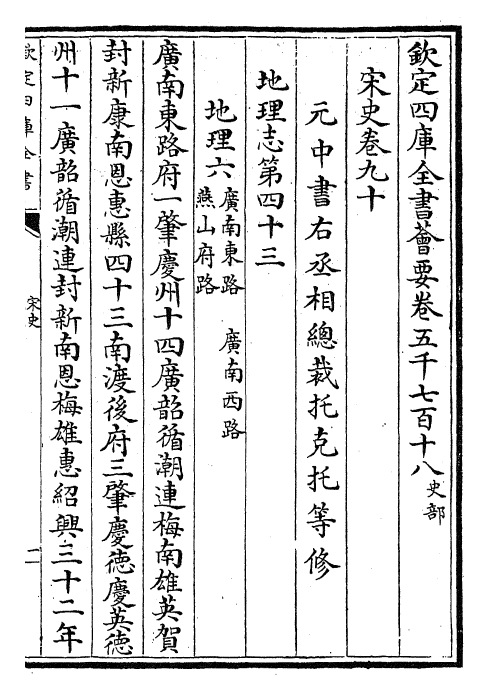 欽定四庫全書薈要卷五千七百十八史部
宋史卷九十
元中書右丞相總裁托克托等修
地理志第四十三
地理六廣南東路 廣南西路
燕山府路
廣南東路府一肇慶州十四廣韶循潮連梅南雄英賀
封新康南恩惠縣四十三南渡後府三肇慶德慶英德
州十一廣韶循潮連封新南恩梅雄惠紹興三十二年
欽定四庫全書
宋史
一